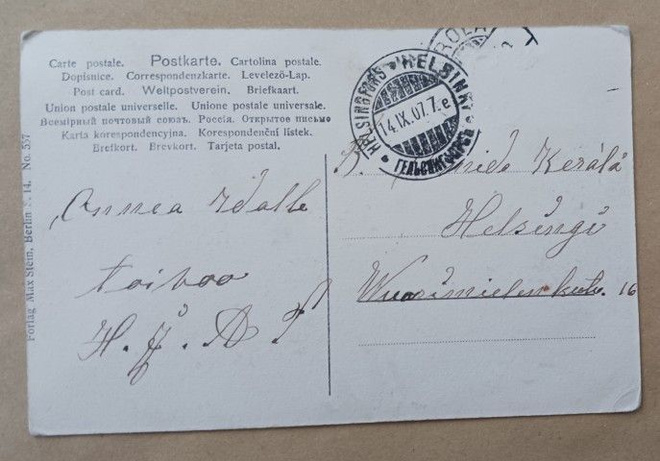 Carte postale. Postkarte. Cartolina postale.
Dopisnice. Correspondenzkarte. Levelező-Lap.
Post card. Weltpostverein. Briefkaart.
Union postale universelle. Unione postale universale.
Всемірный почтовый союзъ. Россія. Открытое письмо
Karta korespondencyjna. Korespondenční listek.
Brefkort. Brevkort. Tarjeta postal.
HELSINGFORS HELSINKI
14.IX.07.7.e
ГЕЛЬСИНГФОРСЪ
Onnea
toivoo
H. J. A. T
Kerälä
Helsingi
16
Verlag Max Stein, Berlin 14. No. 557